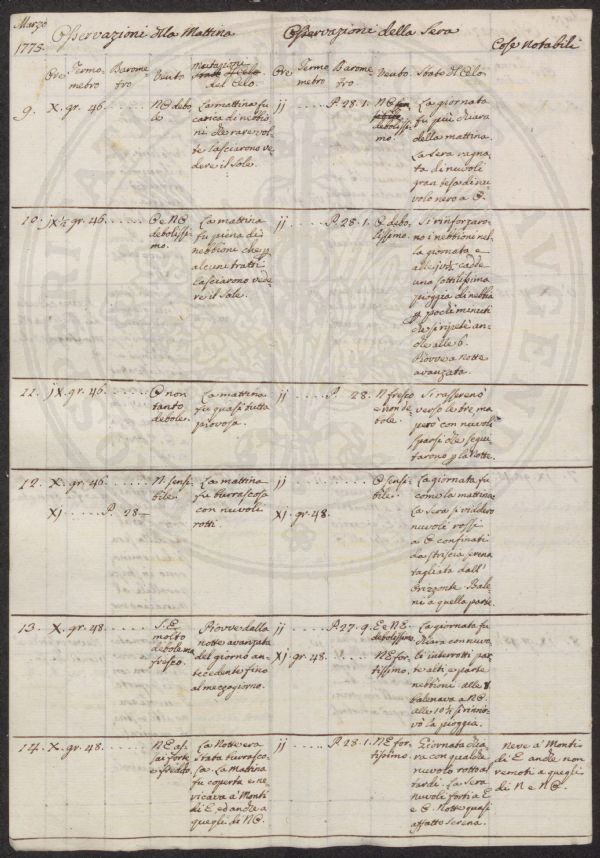 Marzo
1775.
Osservazioni della Mattina
Osservazioni della Sera
Cose Notabili
Ore Termometro Barometro Vento Mutazioni Stato del Celo del Celo.
Ore Termometro Barometro Vento Stato del Celo.
9. X. gr. 46 . . . . . N E debo
le
La mattina fu
carica di nebbio
ni che rare vol
te lasciarono ve
dere il Sole.
jj . . . . P. 28. 1. N E
debolissi
mo.
La giornata
fu più chiara
della mattina.
La Sera ragna
ta di nuvoli
gran tesa di nu
volo nero a O.
10. jX ½ gr. 46 . . . . . O e N O
debolissi
mo.
La mattina
fu piena di
nebbione che p
alcuni tratti
lasciarono vede
re il Sole.
jj . . . . P. 28. 1. O debo
lissimo.
Si rinforzaro
no i nebbioni nel
la giornata e
cadde
una sottilissima
pioggia di nebbia
p pochi minuti
che si ripetè an
che alle 6.
Piovve a notte
avanzata.
11. jX. gr. 46 . . . . . O non
tanto
debole.
La mattina
fu quasi tutta
piovosa.
jj . . . . P. 28. N fresco
e non de
bole.
Si rasserenò
verso le tre, ma
però con nuvoli
sparsi che segui
tarono p la notte.
12. X. gr. 46 . . . . . N. sensi
bile.
Xj . . . . . P. 28 —
La mattina
fu burrascosa
con nuvoli
rotti.
jj O sensi
bile.
Xj. gr. 48.
La giornata fu
come la mattina.
La sera si viddero
nuvoli rossi
a O confinati
da striscia serena
tagliata dall'
Orizzonte. Bale
ni a quella parte.
13. X. gr. 48 . . . . . S. E
molto
debole ma
fresco.
Piovve dalla
notte avanzata
del giorno an
tecedente fino
al mezzogiorno.
jj . . . . P. 27. 9. E e N E.
debolissimo.
Xj gr. 48. N E for
tissimo.
La giornata fu
chiara con nuvo
li interrotti par
te alti e parte
nebbioni. alle 8
balenava a N O.
alle 10 ½ si rinno
vò la pioggia.
14. X. gr. 48 . . . . . N E as
sai forte
e freddo.
La Notte era
stata burrasco
sa. La mattina
fu coperta e ne
vicava a' Monti
di E, ed anche a
quegli di N O.
jj . . . . P. 28. 1. N E for
tissimo.
Giornata chia
ra con qualche
nuvolo rotto al
tardi. La Sera
nuvoli forti a E
e O. Notte quasi
affatto Serena.
Neve a' Monti
di E anche non
remoti a quegli
di N e N O.